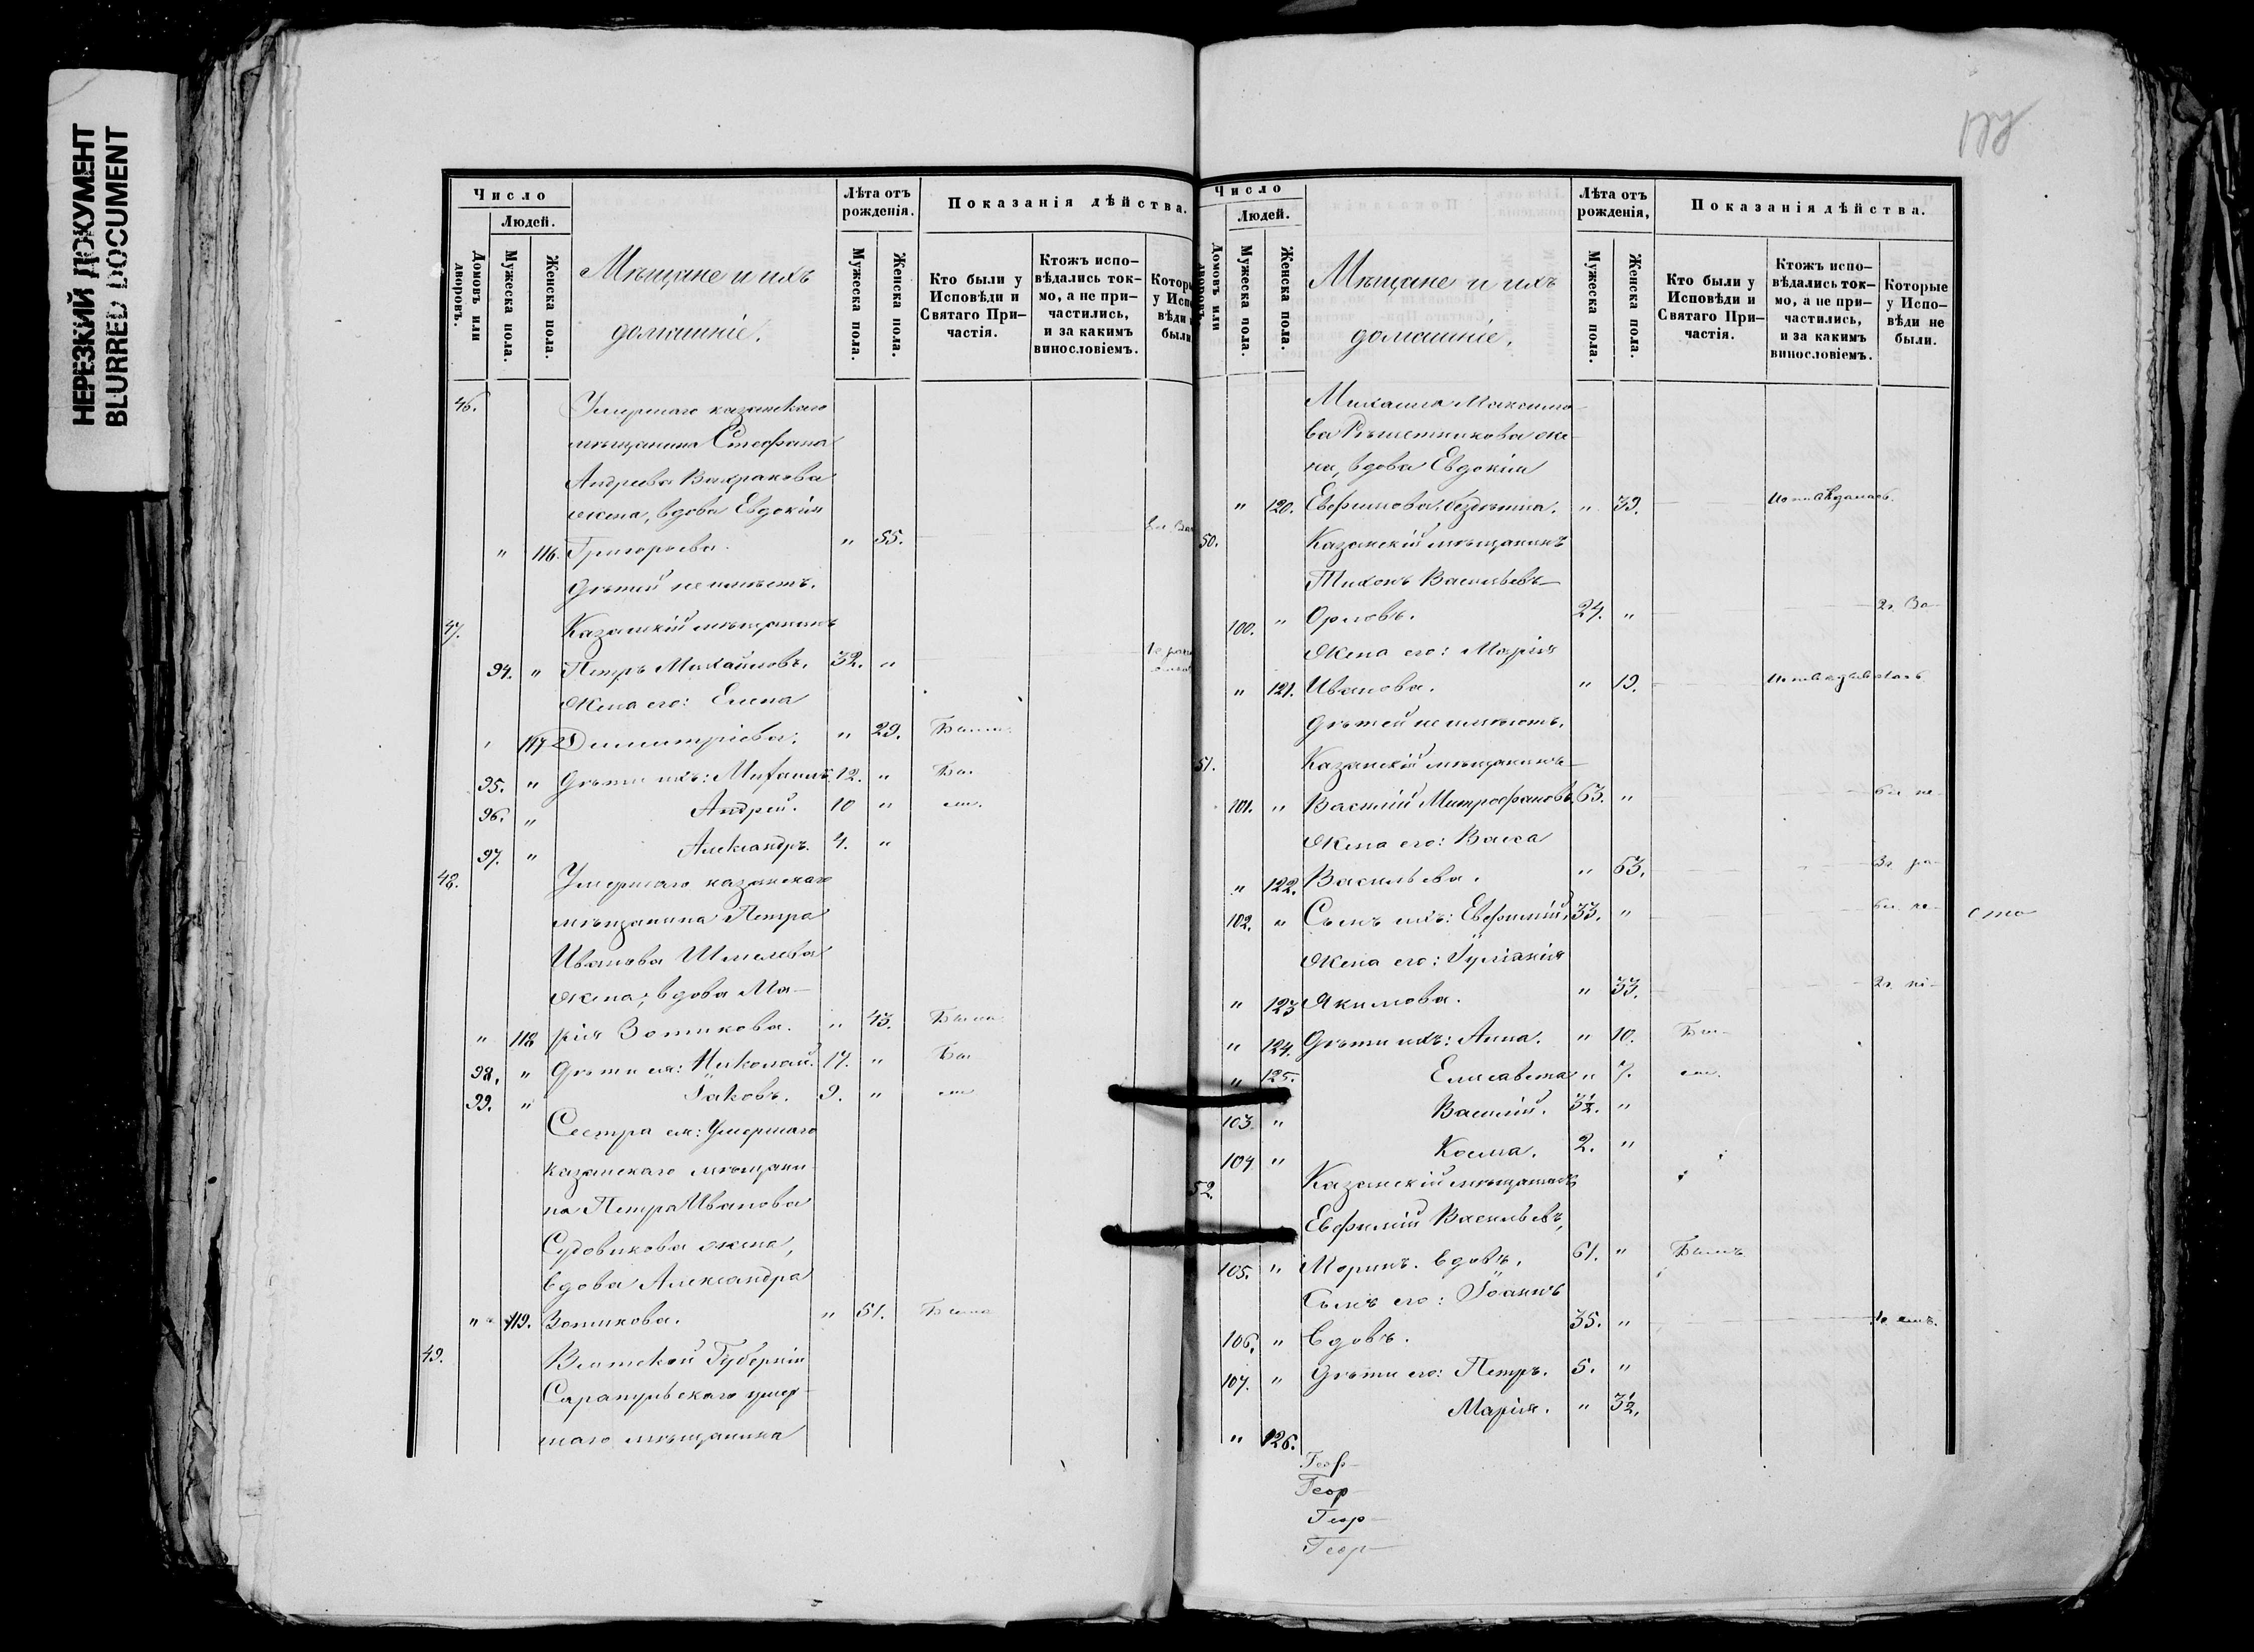 НЕРЕЗКИЙ ДОКУМЕНТ
BLURRED DOCUMENT
Число
Людей.
Домовъ или дворовъ.
Мужеска пола.
Женска пола.
Мѣщане и ихъ
домашніе.
Лѣта отъ рожденія.
Мужеска пола.
Женска пола.
Показанія дѣйства.
Кто были у Исповѣди и Святаго Причастія.
Ктожъ исповѣдались токмо, а не причастились, и за какимъ винословіемъ.
46. Умершаго казанскаго
мѣщанина Стефана
Андреева Вахракова
жена, вдова Евдокія
" 116. Григорьева. " 55.
Дѣтей не имѣетъ.
47. Казанскій мѣщанинъ
94. " Петръ Михайловъ. 32. "
Жена его: Елена
" 117 Димитріева. " 29. Была.
95. " Дѣти ихъ: Михаилъ. 12. " Бы
96. " Андрей. 10 " ли.
97. " Александръ. 4. "
48. Умершаго казанскаго
мѣщанина Петра
Иванова Шмелева
жена, вдова Ма-
" 118 рія Зотикова. " 43. Была
98. " Дѣти ея: Николай. 17. " Бы
99. " Іаковъ. 9. " ли
Сестра ея: Умершаго
казанскаго мѣщани-
на Петра Иванова
Судовикова жена,
вдова Александра
" 119. Зотикова. " 51. Была
49. Вятской Губерніи
Сарапульскаго умер-
шаго мѣщанина
Число
Людей.
Домовъ или дворовъ.
Мужеска пола.
Женска пола.
Мѣщане и ихъ
домашніе.
Лѣта отъ рожденія,
Мужеска пола.
Женска пола.
Показанія дѣйства.
Кто были у Исповѣди и Святаго Причастія.
Ктожъ исповѣдались токмо, а не причастились, и за какимъ винословіемъ.
Которые у Исповѣди не были.
Михаила Максимо-
ва Рѣшетникова же-
на, вдова Евдокія
" 120. Евфимова, бездѣтна. " 39.
50. Казанскій мѣщанинъ
Тихонъ Васильевъ
100. " Орловъ. 24. "
Жена его: Марія
" 121. Иванова. " 19.
Дѣтей не имѣютъ.
51. Казанскій мѣщанинъ
101. " Василій Митрофановъ. 63. "
Жена его: Васса
" 122. Васильева. " 63.
102. " Сынъ ихъ: Евфимій. 33. "
Жена его: Іуліанія
" 123 Якимова. " 33.
" 124. Дѣти ихъ: Анна. " 10. Бы-
" 125. Елисавета " 7. ли.
103. " Василій. 3½. "
104 " Косма. 2. "
52. Казанскій мѣщанинъ
Евфимій Васильевъ,
105. " Моринъ. вдовъ. 61. " Былъ
Сынъ его: Іоаннъ
106. " вдовъ. 35. "
107. " Дѣти его: Петръ. 5. "
" 126. Марія. " 3½.
Геор
Геор
Геор
Геор